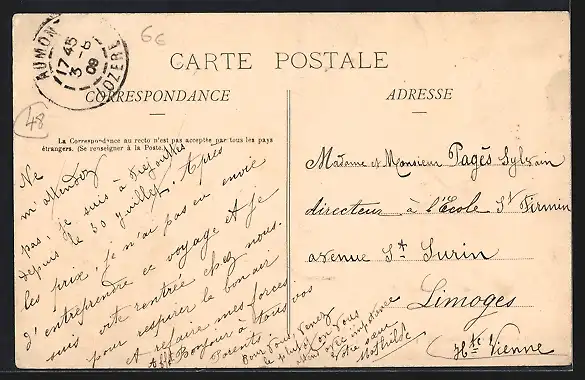 AUMONT
17 45
3 - 6
09
LOZERE
66
48
CARTE POSTALE
CORRESPONDANCE
ADRESSE
La Correspondance au recto n'est pas acceptée par tous les pays
étrangers. (Se renseigner à la Poste.)
Ne
m'attendez
pas, je suis à
depuis le 30 juillet. Après
les prix, je n'ai pas eu envie
d'entreprendre ce voyage et je
suis vite rentrée chez nous
pour respirer le bon air
et refaire mes forces
Bonjour à tous vos
Parents.
Pour vous venez
le plus tôt vous
impatience
Votre sœur
Mathilde
Madame et Monsieur Pagès Sylvain
directeur à l'École St Firmin
avenue St Surin
Limoges
Hte Vienne